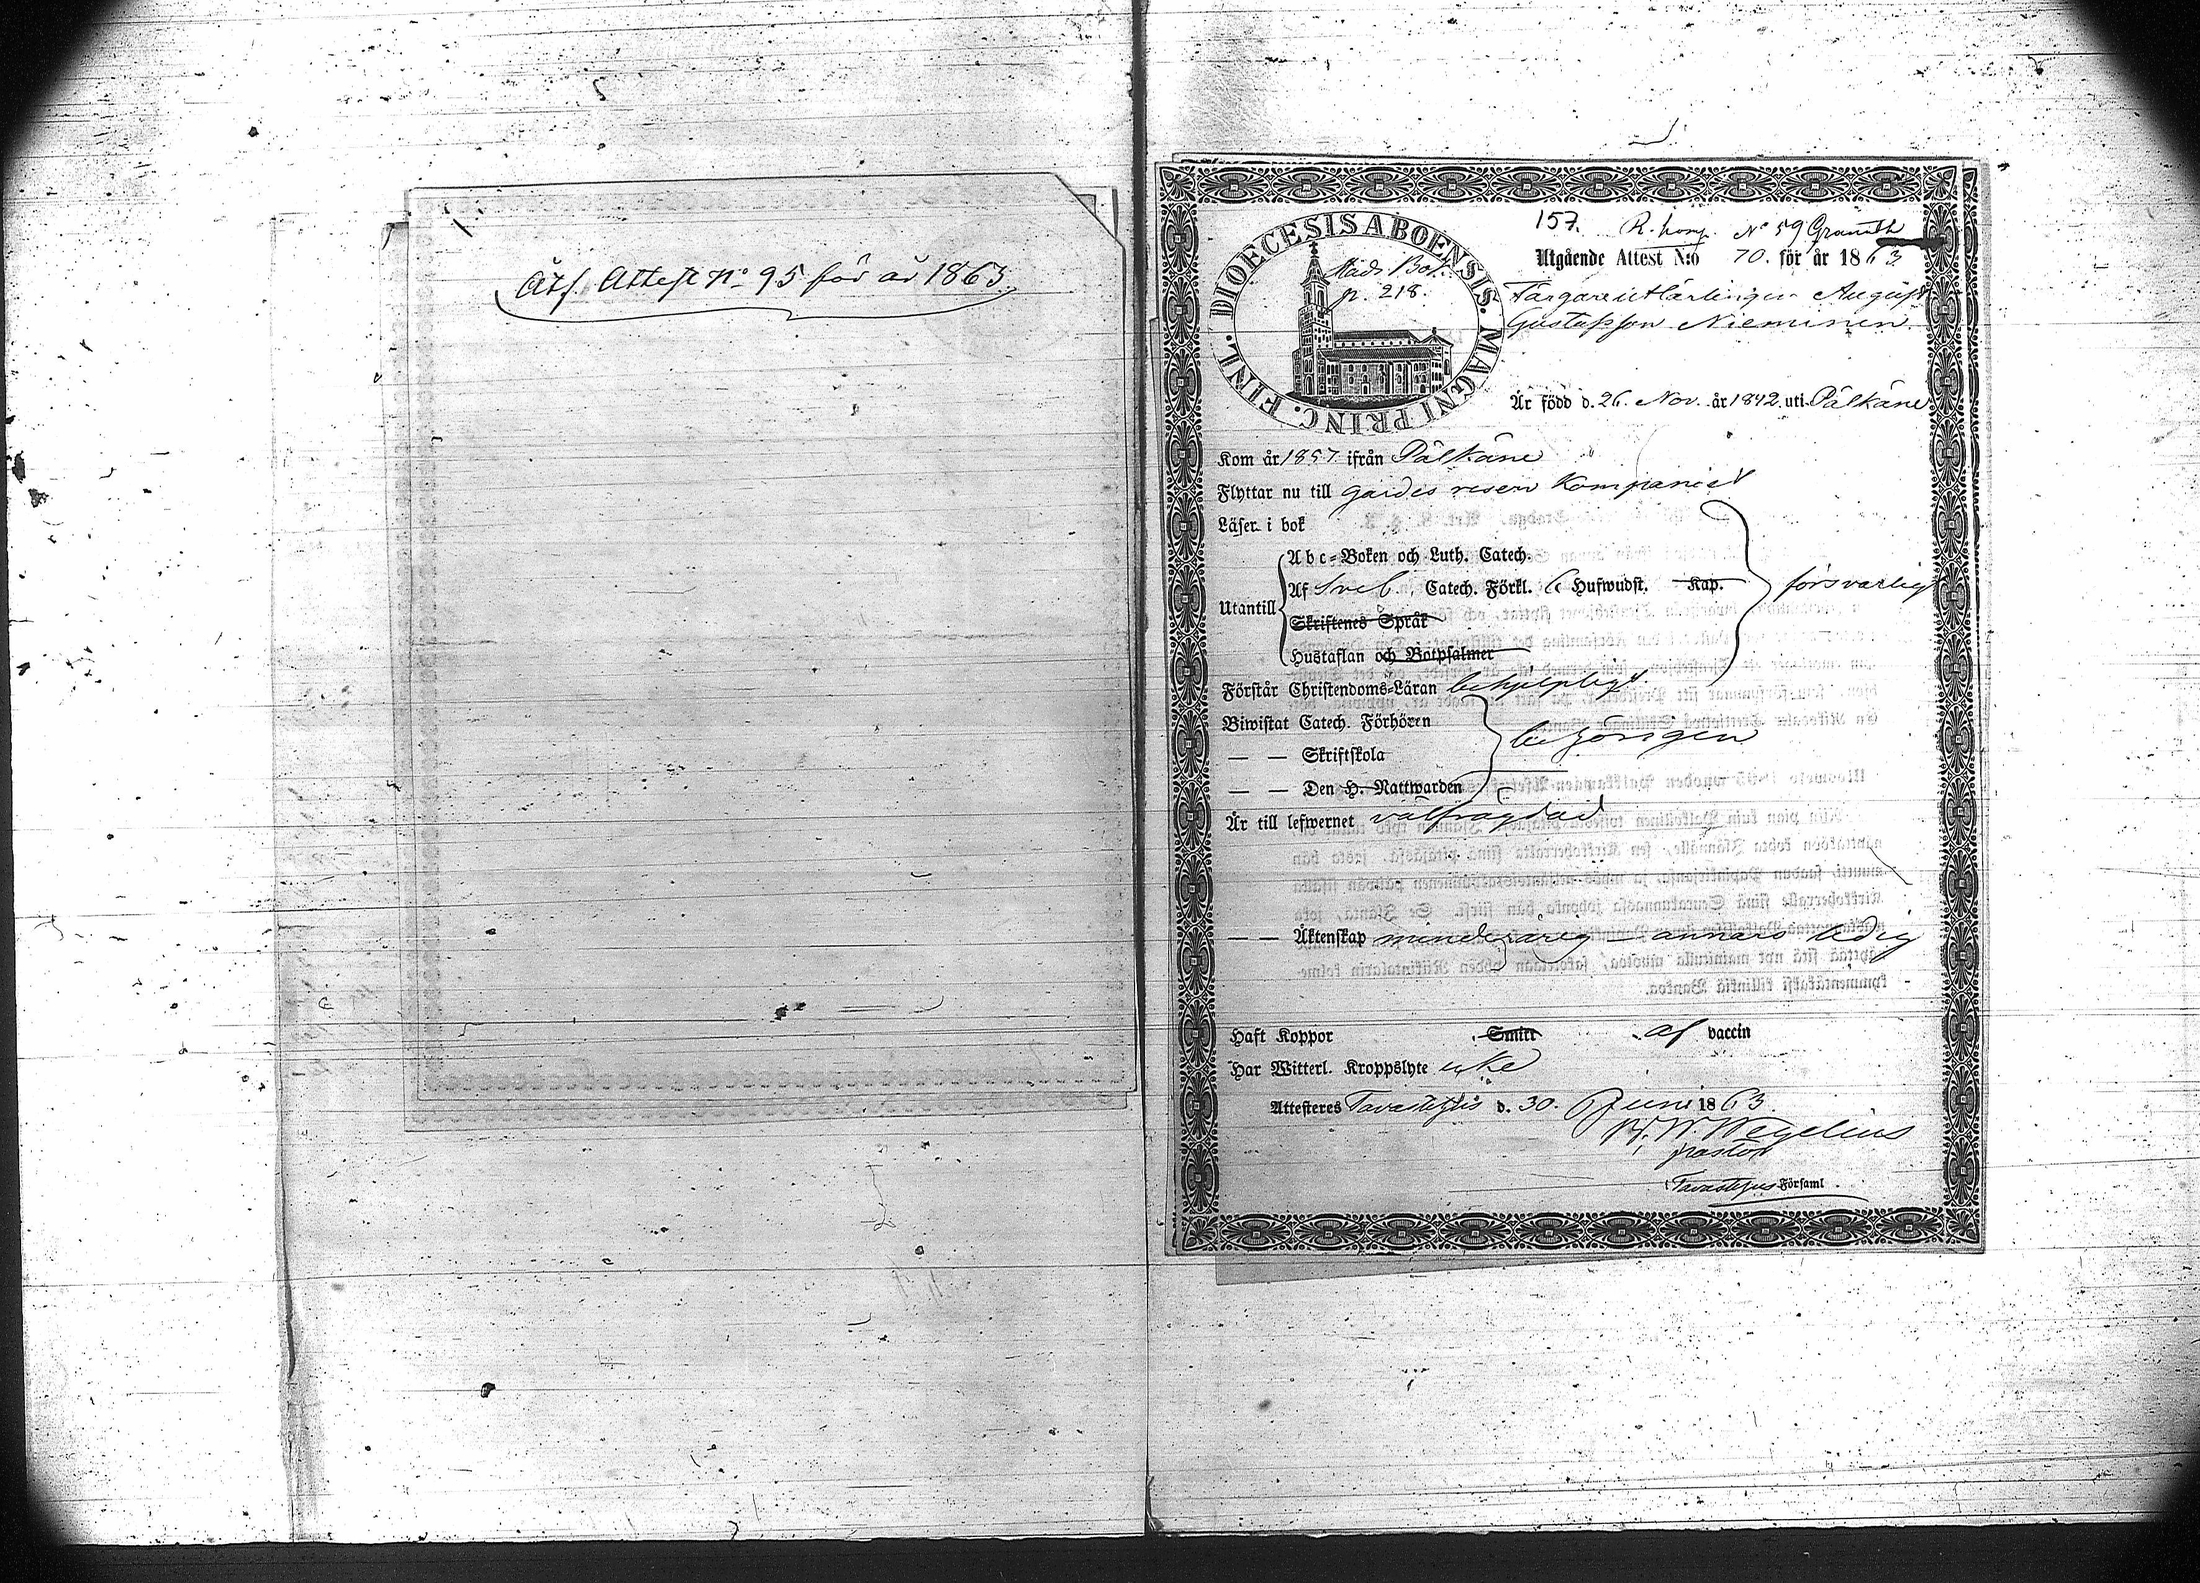 Åtf. Attest No 95 för år 1863.
157. R. komp. No 59 Granith
Utgående Attest N:o 70. för år 1863
DIOECESIS ABOENSIS. MAGNI PRINC. FINL.
p. 218.
Färgare Lärlingen August
Gustafsson Nieminen
Är född d. 26. Nov. år 1842. uti Pälkäne
Kom år 1857 ifrån Pälkäne
Flyttar nu till gardes reserv Kompaniet
Läser i bok
Abc-Boken och Luth. Catech.
Utantill Af Sveb. Catech. Förkl. 6 Hufwudst. Kap. försvarligt
Skriftenes Språk
Hustaflan och Botpsalmer
Förstår Christendoms-Läran behjelpligt
Biwistat Catech. Förhören
behörigen
— — Skriftskola
— — Den H. Nattwarden
Är till lefwernet välfrägdad
— — Äktenskap minderårig — annars ledig
Haft Koppor Smitt af vaccin
Har Witterl. Kroppslyte icke
Attesteres Tavastehus d. 30. Juni 1863
Wegelius
pastor
Tavastehus Församl.